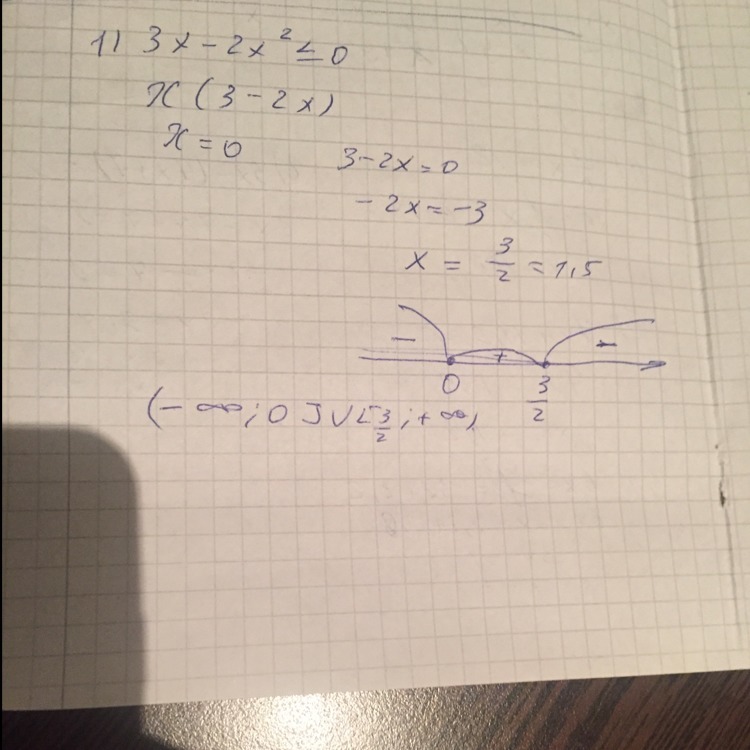 1) 3x - 2x² ≤ 0
x (3 - 2x)
x = 0
3 - 2x = 0
- 2x = -3
x = 3/2 = 1,5
- + -
0 3/2
(- ∞; 0 ] ∪ [3/2; +∞)